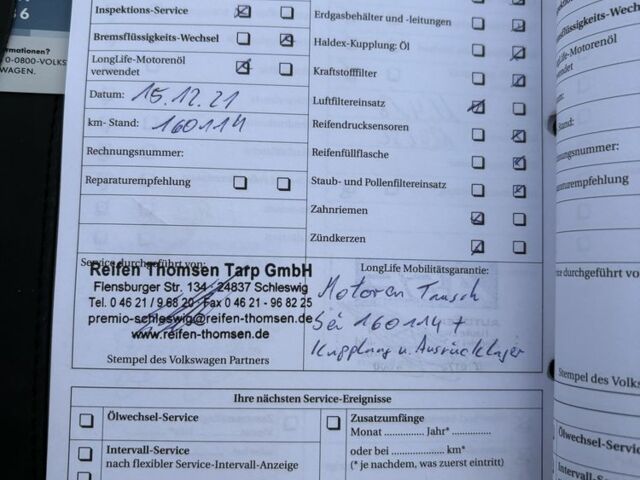 Inspektions-Service
Bremsflüssigkeits-Wechsel
LongLife-Motorenöl
verwendet
Datum: 15.12.21
km- Stand: 160114
Rechnungsnummer:
Reparaturempfehlung
Erdgasbehälter und -leitungen
Haldex-Kupplung: Öl
Kraftstofffilter
Luftfiltereinsatz
Reifendrucksensoren
Reifenfüllflasche
Staub- und Pollenfiltereinsatz
Zahnriemen
Zündkerzen
Service durchgeführt von:
Reifen Thomsen Tarp GmbH
Flensburger Str. 134 · 24837 Schleswig
Tel. 0 46 21 / 9 68 20 · Fax 0 46 21 - 96 82 25
premio-schleswig@reifen-thomsen.de
www.reifen-thomsen.de
Stempel des Volkswagen Partners
LongLife Mobilitätsgarantie:
Motoren Tausch
bei 160114 +
Kupplung u. Ausrücklager
Ihre nächsten Service-Ereignisse
Ölwechsel-Service
Intervall-Service
nach flexibler Service-Intervall-Anzeige
Zusatzumfänge
Monat .............. Jahr* ..............
oder bei .............. km*
(* je nachdem, was zuerst eintritt)
0-0800-VOLKS
WAGEN.
LongLife-Motorenöl
verwendet
Datum:
Stempel des Volks